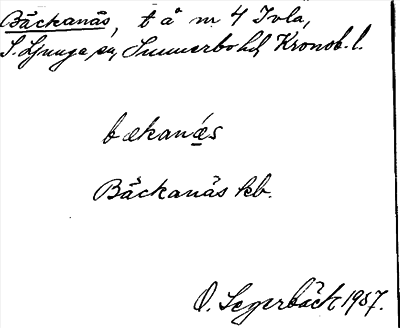 Bäckanäs, t å m 4 Ivla,
S. Ljunga sn, Sunnerbo hd, Kronob. l.
bækanæs
Bäckanäs kb.
O. Segerbäck 1937.